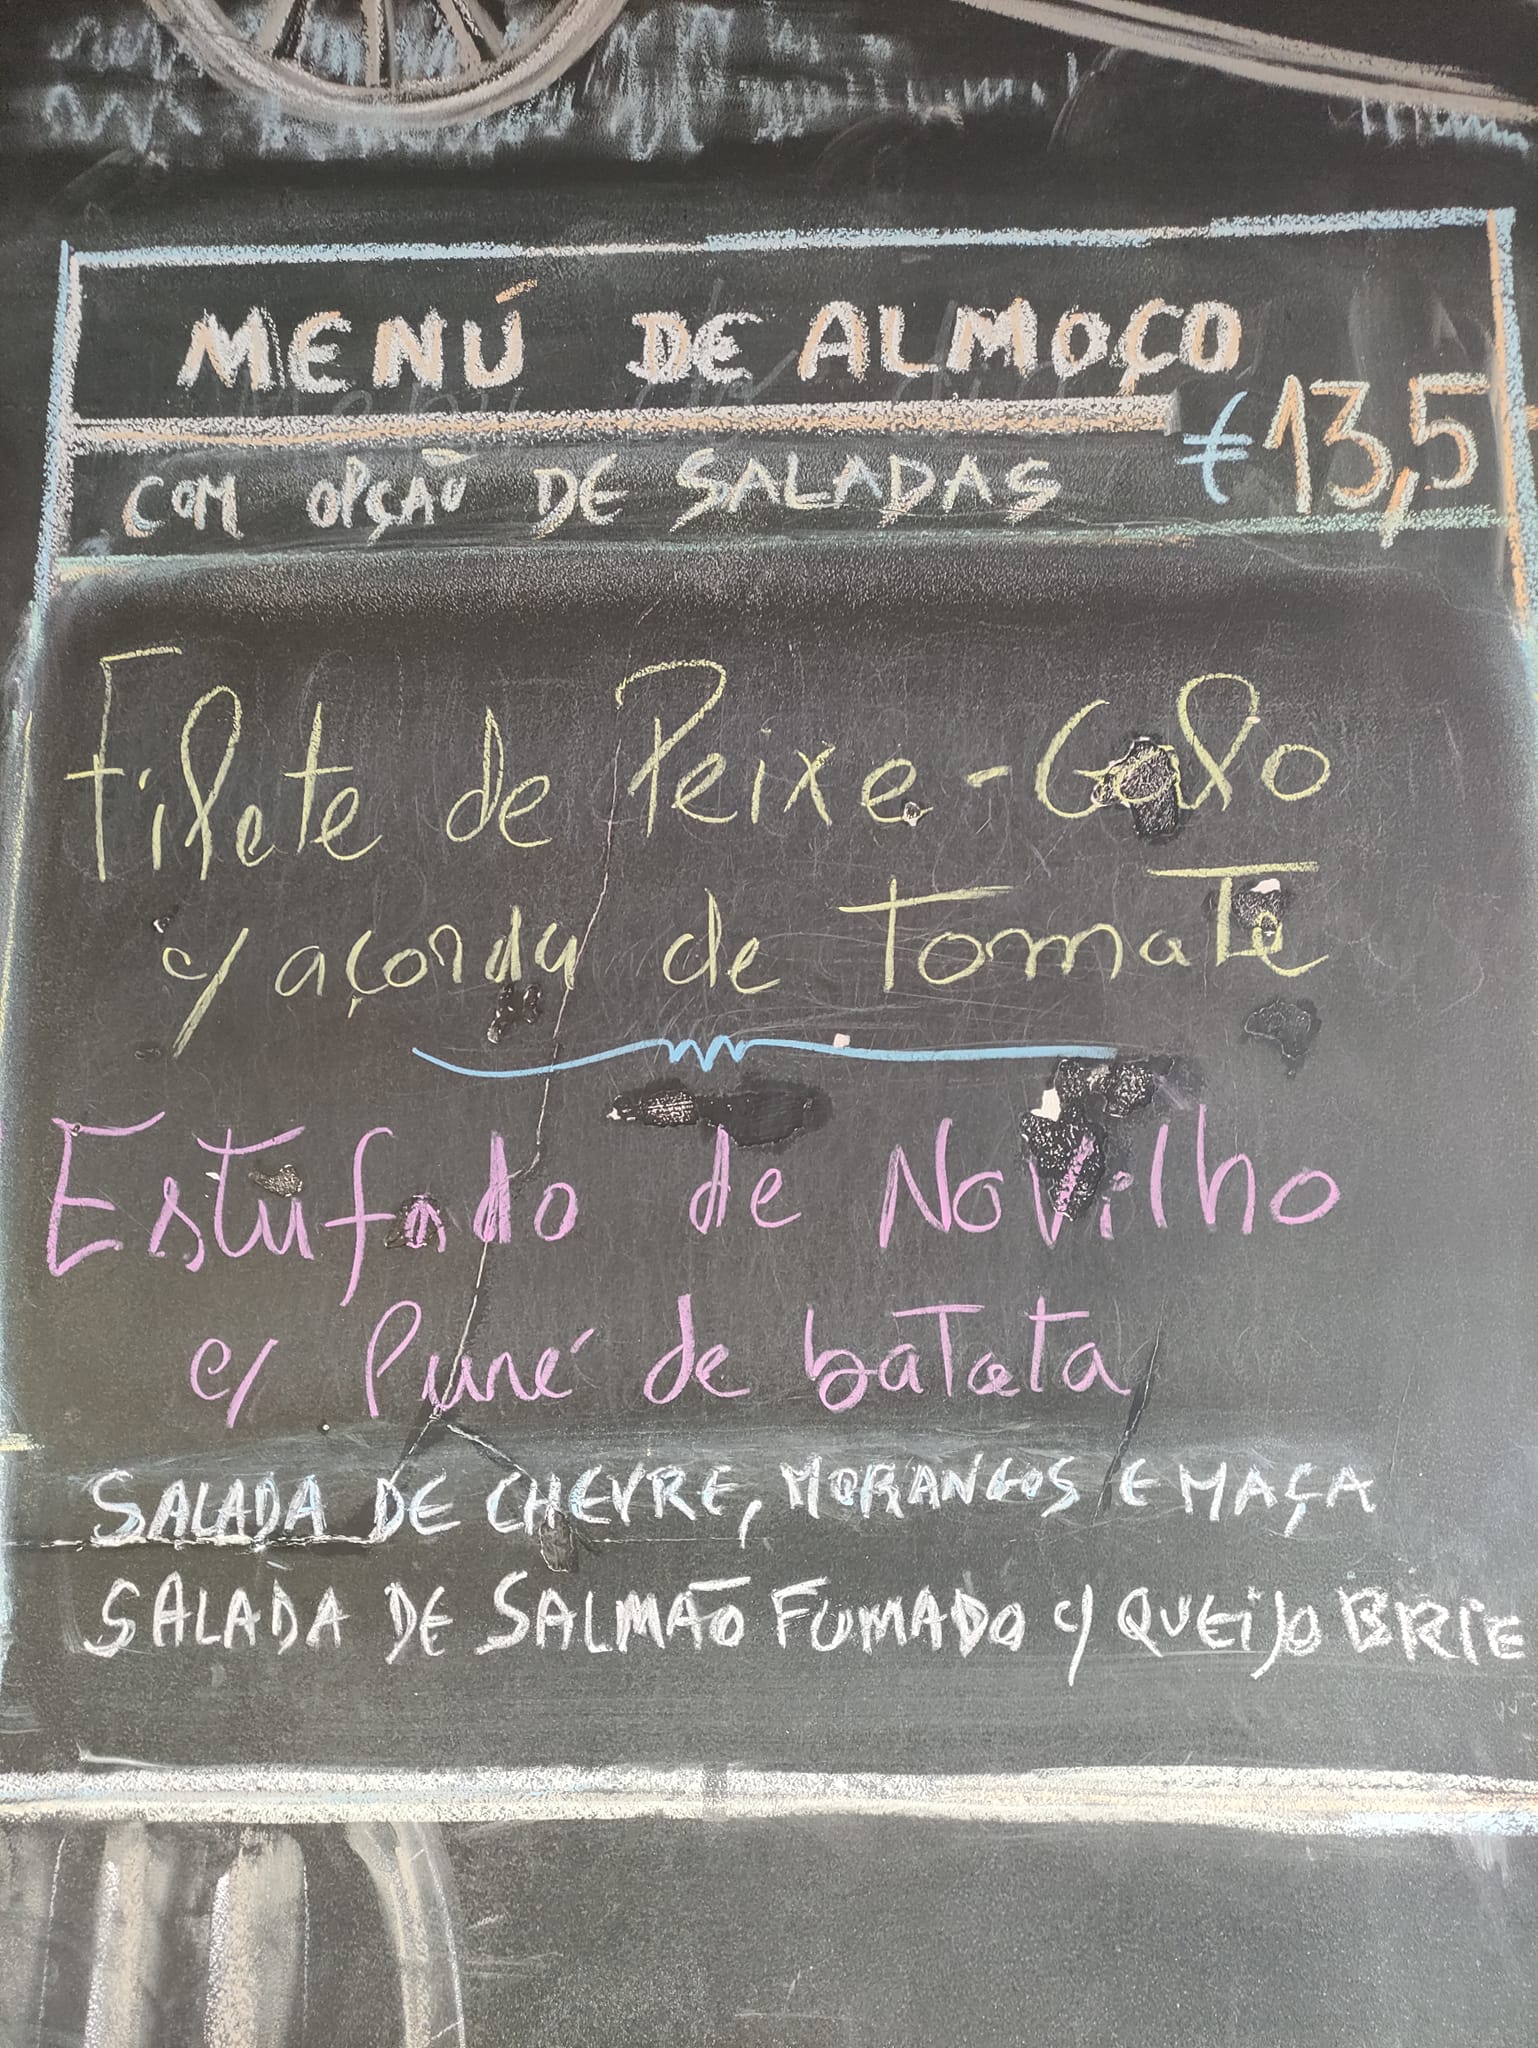 MENÚ DE ALMOÇO
COM OPÇÃO DE SALADAS €13,5
Filete de Peixe-Galo
c/ açorda de Tomate
Estufado de Novilho
c/ Puré de batata
SALADA DE CHEVRE, MORANGOS E MAÇA
SALADA DE SALMÃO FUMADO c/ QUEIJO BRIE